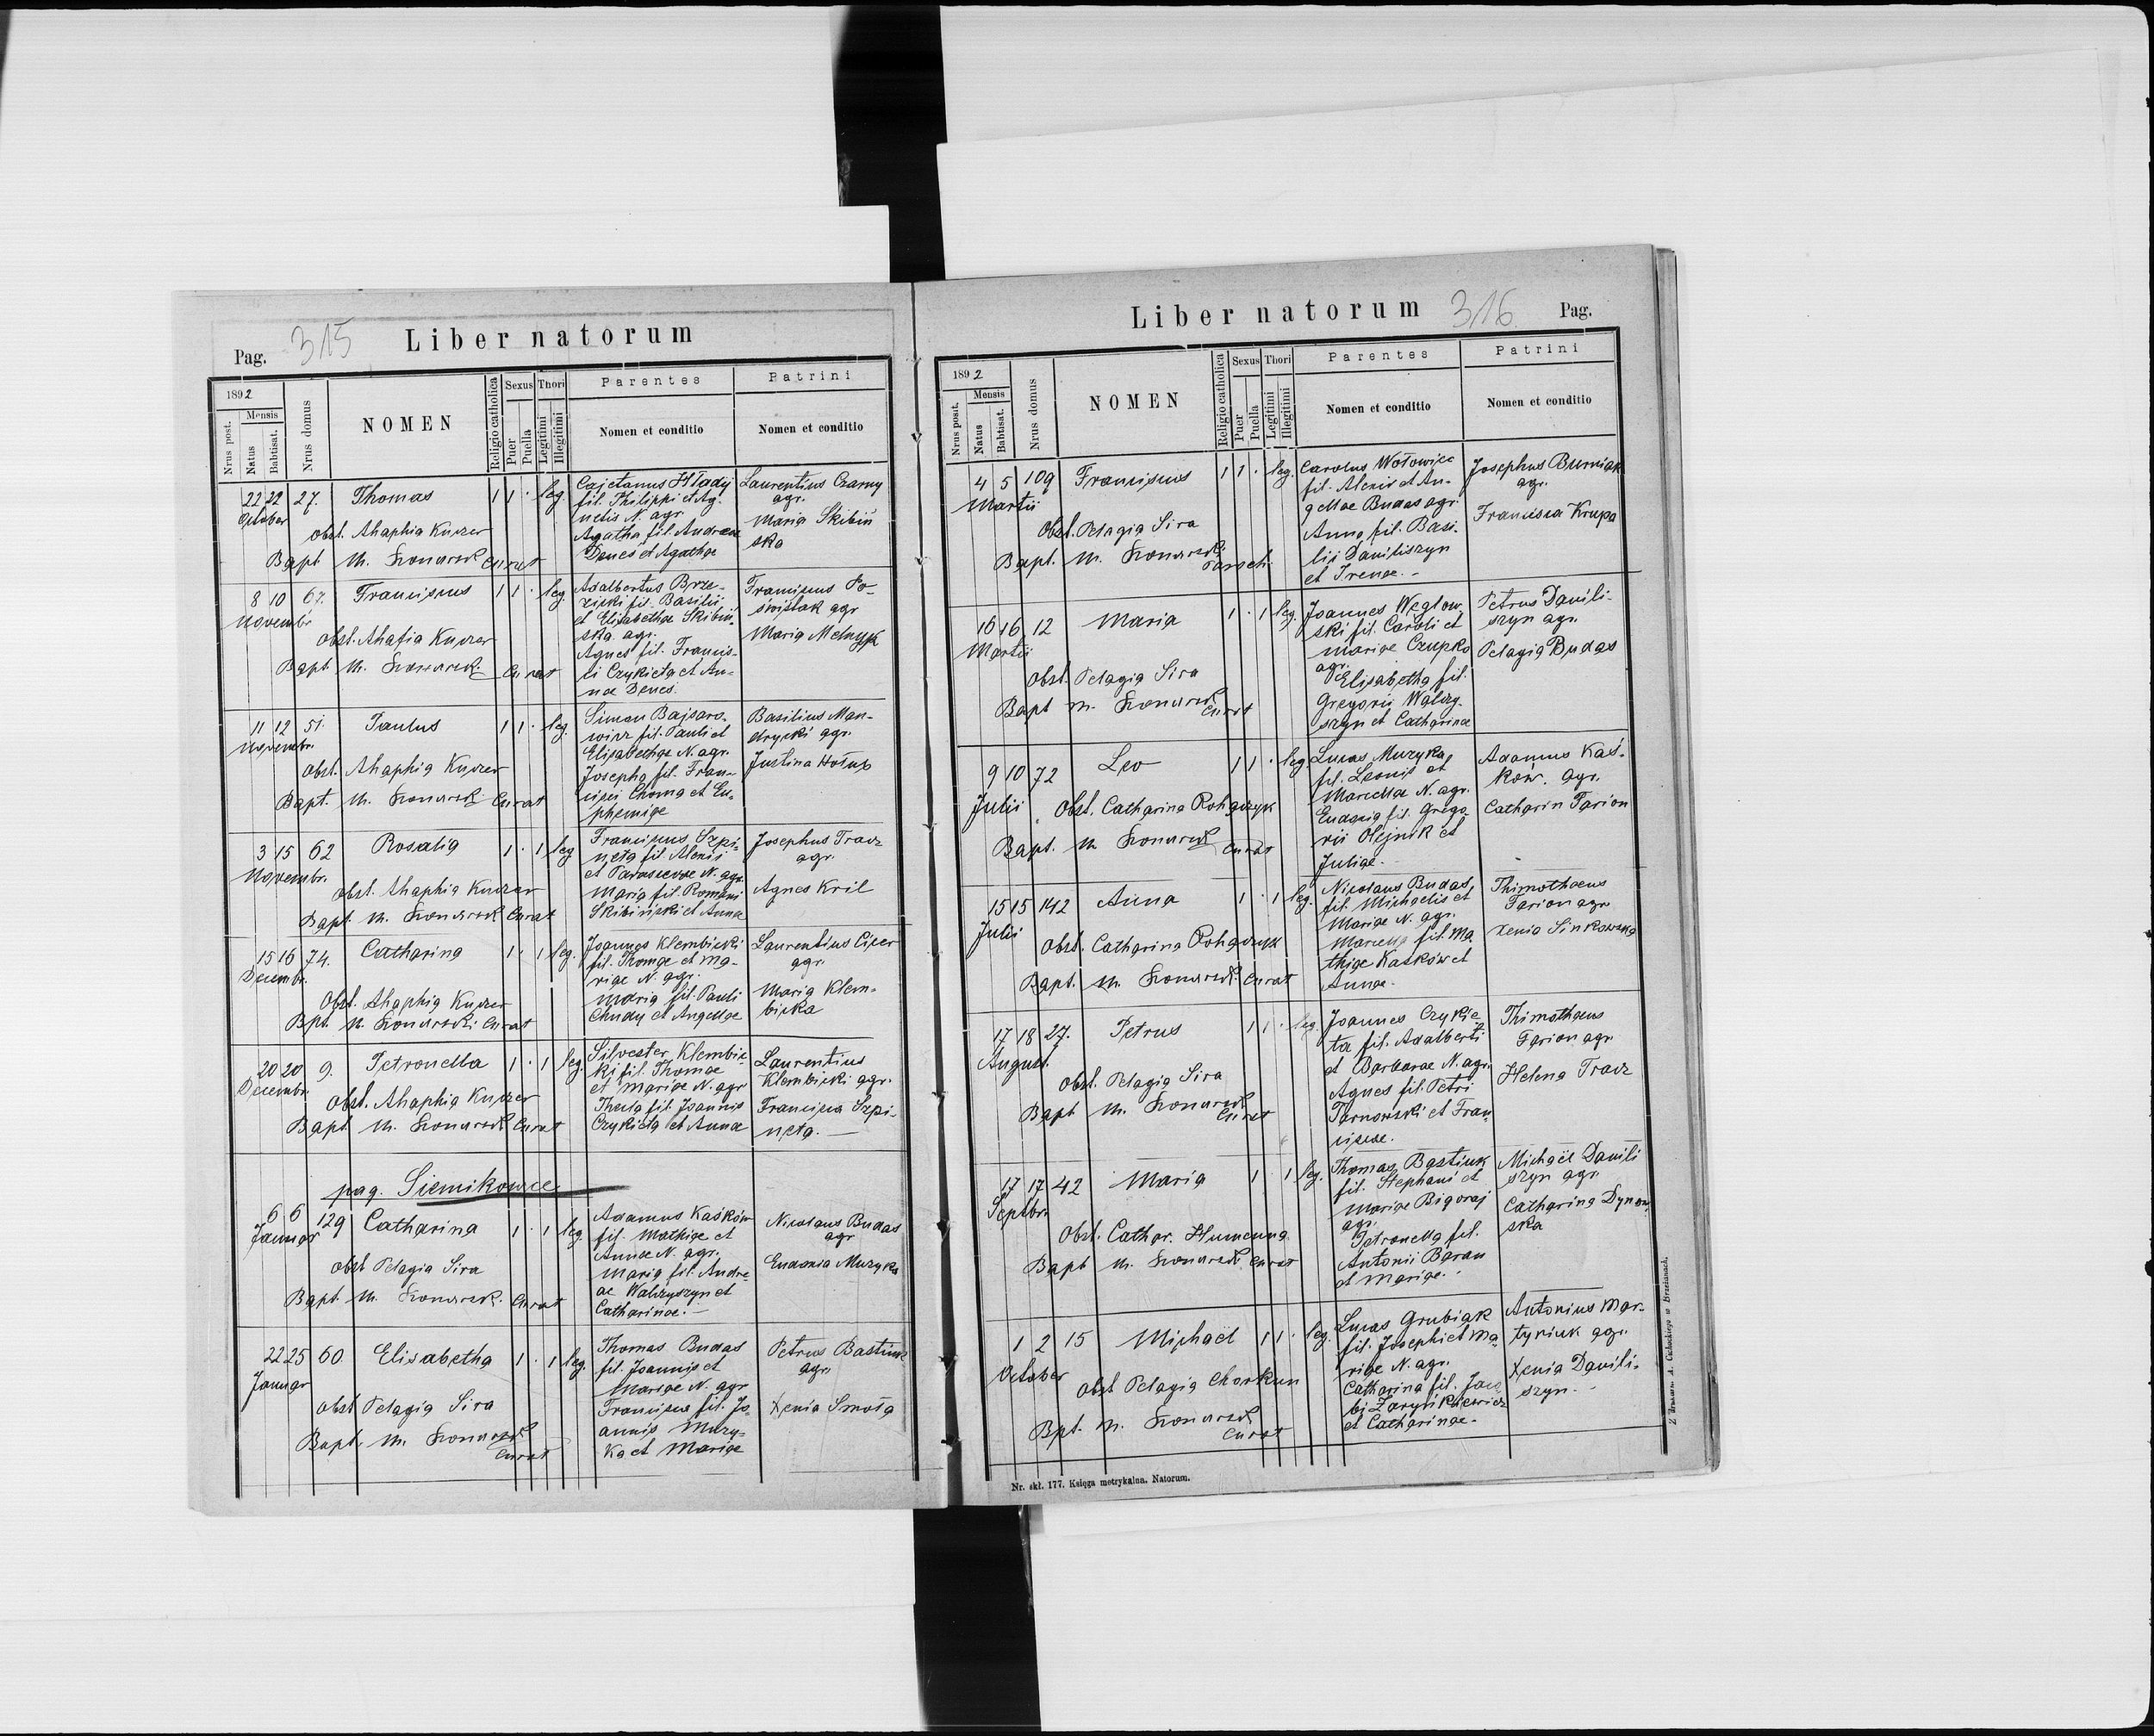 Pag. 315 Liber natorum
1892
Mensis
Nrus post.
Natus
Babtisat.
Nrus domus
NOMEN
Religio catholica
Sexus
Puer
Puella
Thori
Legitimi
Illegitimi
Parentes
Nomen et conditio
Patrini
Nomen et conditio
22 22 27. Thomas 1 1 · leg.
October
obst. Ahaphia Kuczer
Bapt M. Curat
Cajetanus Hłady
fil. Philippi et Ag-
netis N. agr.
Agatha fil. Andreae
Denes et Agathae
Laurentius Czarny
agr.
Maria Skibiń
ska
8 10 67. Franciscus 1 1 · leg.
Novembr
Obst. Ahafia Kuczer
Bapt M. Curat
Adalbertus Brze-
zicki fil. Basilii
et Elisabethae Skibiń-
ska agr.
Agnes fil. Francis-
ci Czykieta et An-
nae Denes.
Franciscus Po-
świstak agr
Maria Melnyk
11 12 51. Paulus 1 1 · leg.
Novembr.
Obst. Ahaphia Kuczer
Bapt. M. Curat
Simon Bajsaro-
wicz fil. Pauli et
Elisabethae N. agr.
Josepha fil. Fran-
cisci Choma et Eu-
phemiae
Basilius Man-
drycki agr.
Justina Hołub
3 15 62 Rosalia 1 · 1 leg
Novembr.
Obst. Ahaphia Kuczer
Bapt M. Curat
Franciscus Szpi-
neta fil Alexii
et Parascevae N. agr.
Maria fil Romani
Skibiński et Annae
Josephus Tracz
agr.
Agnes Kril
15 16 74. Catharina 1 · 1 leg.
Decembr.
Obst. Ahaphia Kuczer
Bpt. M. Curat
Joannes Klembicki
fil. Thomae et Ma-
riae N. agr.
Maria fil. Pauli
Chudy et Angellae
Laurentius Ciser
agr.
Maria Klem-
bicka
20 20 9. Petronella 1 · 1 leg.
Decembr.
Obst. Ahaphia Kuczer
Bapt M. Curat
Silvester Klembic-
ki fil. Thomae
et Mariae N. agr
Thecla fil. Joannis
Czykieta et Annae
Laurentius
Klembicki agr.
Francisca Szpi-
neta. —
pag. Siemikowce
6 6 129 Catharina 1 · 1 leg.
Januar
obst Pelagia Sira
Bapt. M. Curat
Adamus Kaśków
fil. Mathiae et
Annae N. agr.
Maria fil. Andre-
ae Walczyszyn et
Catharinae. —
Nicolaus Budas
agr
Eudoxia Muzyka
22 25 60 Elisabetha 1 · 1 leg.
Januar
obst Pelagia Sira
Bapt. M. Curat
Thomas Budas
fil. Joannis et
Mariae N. agr
Francisca fil. Jo-
annis Muzy-
ka et Mariae
Petrus Bastiuk
agr.
Xenia Smoła
Liber natorum 316 Pag.
1892
Mensis
Nrus post.
Natus
Babtisat.
Nrus domus
NOMEN
Religio catholica
Sexus
Puer
Puella
Thori
Legitimi
Illegitimi
Parentes
Nomen et conditio
Patrini
Nomen et conditio
4 5 109 Franciscus 1 1 · leg.
Martii
Obst. Pelagia Sira
Bapt. M.
Carolus Wołowiec
fil. Alexii et An-
gellae Budas agr.
Anna fil. Basi-
lii Daniliszyn
et Irenae. -
Josephus Burniak
agr.
Francisca Krupa
16 16 12 Maria 1 · 1 leg.
Martii
Obst. Pelagia Sira
Bapt M. Curat
Joannes Węglow-
ski fil. Caroli et
Mariae Czupko
agr.
Elisabetha fil.
Gregorii Walczy-
szyn et Catharinae
Petrus Danili-
szyn agr.
Pelagia Budas
9 10 72 Leo 1 1 · leg.
Julii Obst. Catharina Rohaczyk
Bapt. M Curat
Lucas Muzyka
fil. Leonis et
Marcellae N. agr.
Eudoxia fil. Grego-
rii Olejnik et
Juliae. -
Adamus Kaś-
ków. agr.
Catharin Farion
15 15 142 Anna 1 · 1 leg.
Julii
Obst. Catharina Rohaczyk
Bapt. M. Curat
Nicolaus Budas
fil. Michaelis et
Mariae N. agr.
Marcella fil. Ma-
thiae Kaśków et
Annae.
Thimothaeus
Farion agr
Xenia Sinkowska
17 18 27. Petrus 1 1 · leg.
August.
Obst. Pelagia Sira
Bapt M. Curat
Joannes Czykie-
ta fil. Adalberti
et Barbarae N. agr.
Agnes fil. Petri
Tarnowski et Fran-
ciscae.
Thimothaeus
Farion agr
Helena Tracz
17 17 42 Maria 1 · 1 leg.
Septbr.
Obst. Cathar. Humenna
Bapt M. Curat
Thomas Bastiuk
fil. Stephani et
Mariae Bigoraj
agr.
Petronella fil.
Antonii Baran
et Mariae. -
Michaël Danili
szyn agr
Catharina Dynow-
ska
1 2 15 Michaël 1 1 · leg.
October
Obst Pelagia Chorkun
Bpt. M. Curat
Lucas Grubiak
fil. Josephi et Ma-
riae N. agr.
Catharina fil. Jaco-
bi
et Catharinae. -
Antonius Mar-
tyniuk agr.
Xenia Danili-
szyn. -
Nr. skł. 177. Księga metrykalna. Natorum.
Z drukarni A. Cichockiego w Brzeżanach.